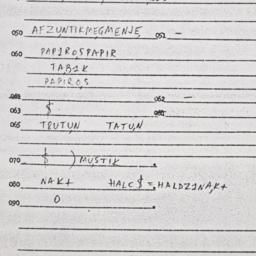 050 AFZUNTIKMEGMENJE 051 –
060 PAPIROSPAPIR
TABAK
PAPIROS
062 –
063 $
065 TEUTUN TATUN
070 $ ) MUSTIK
080 NAKt HALC$ = HALDZINAKt
090 0